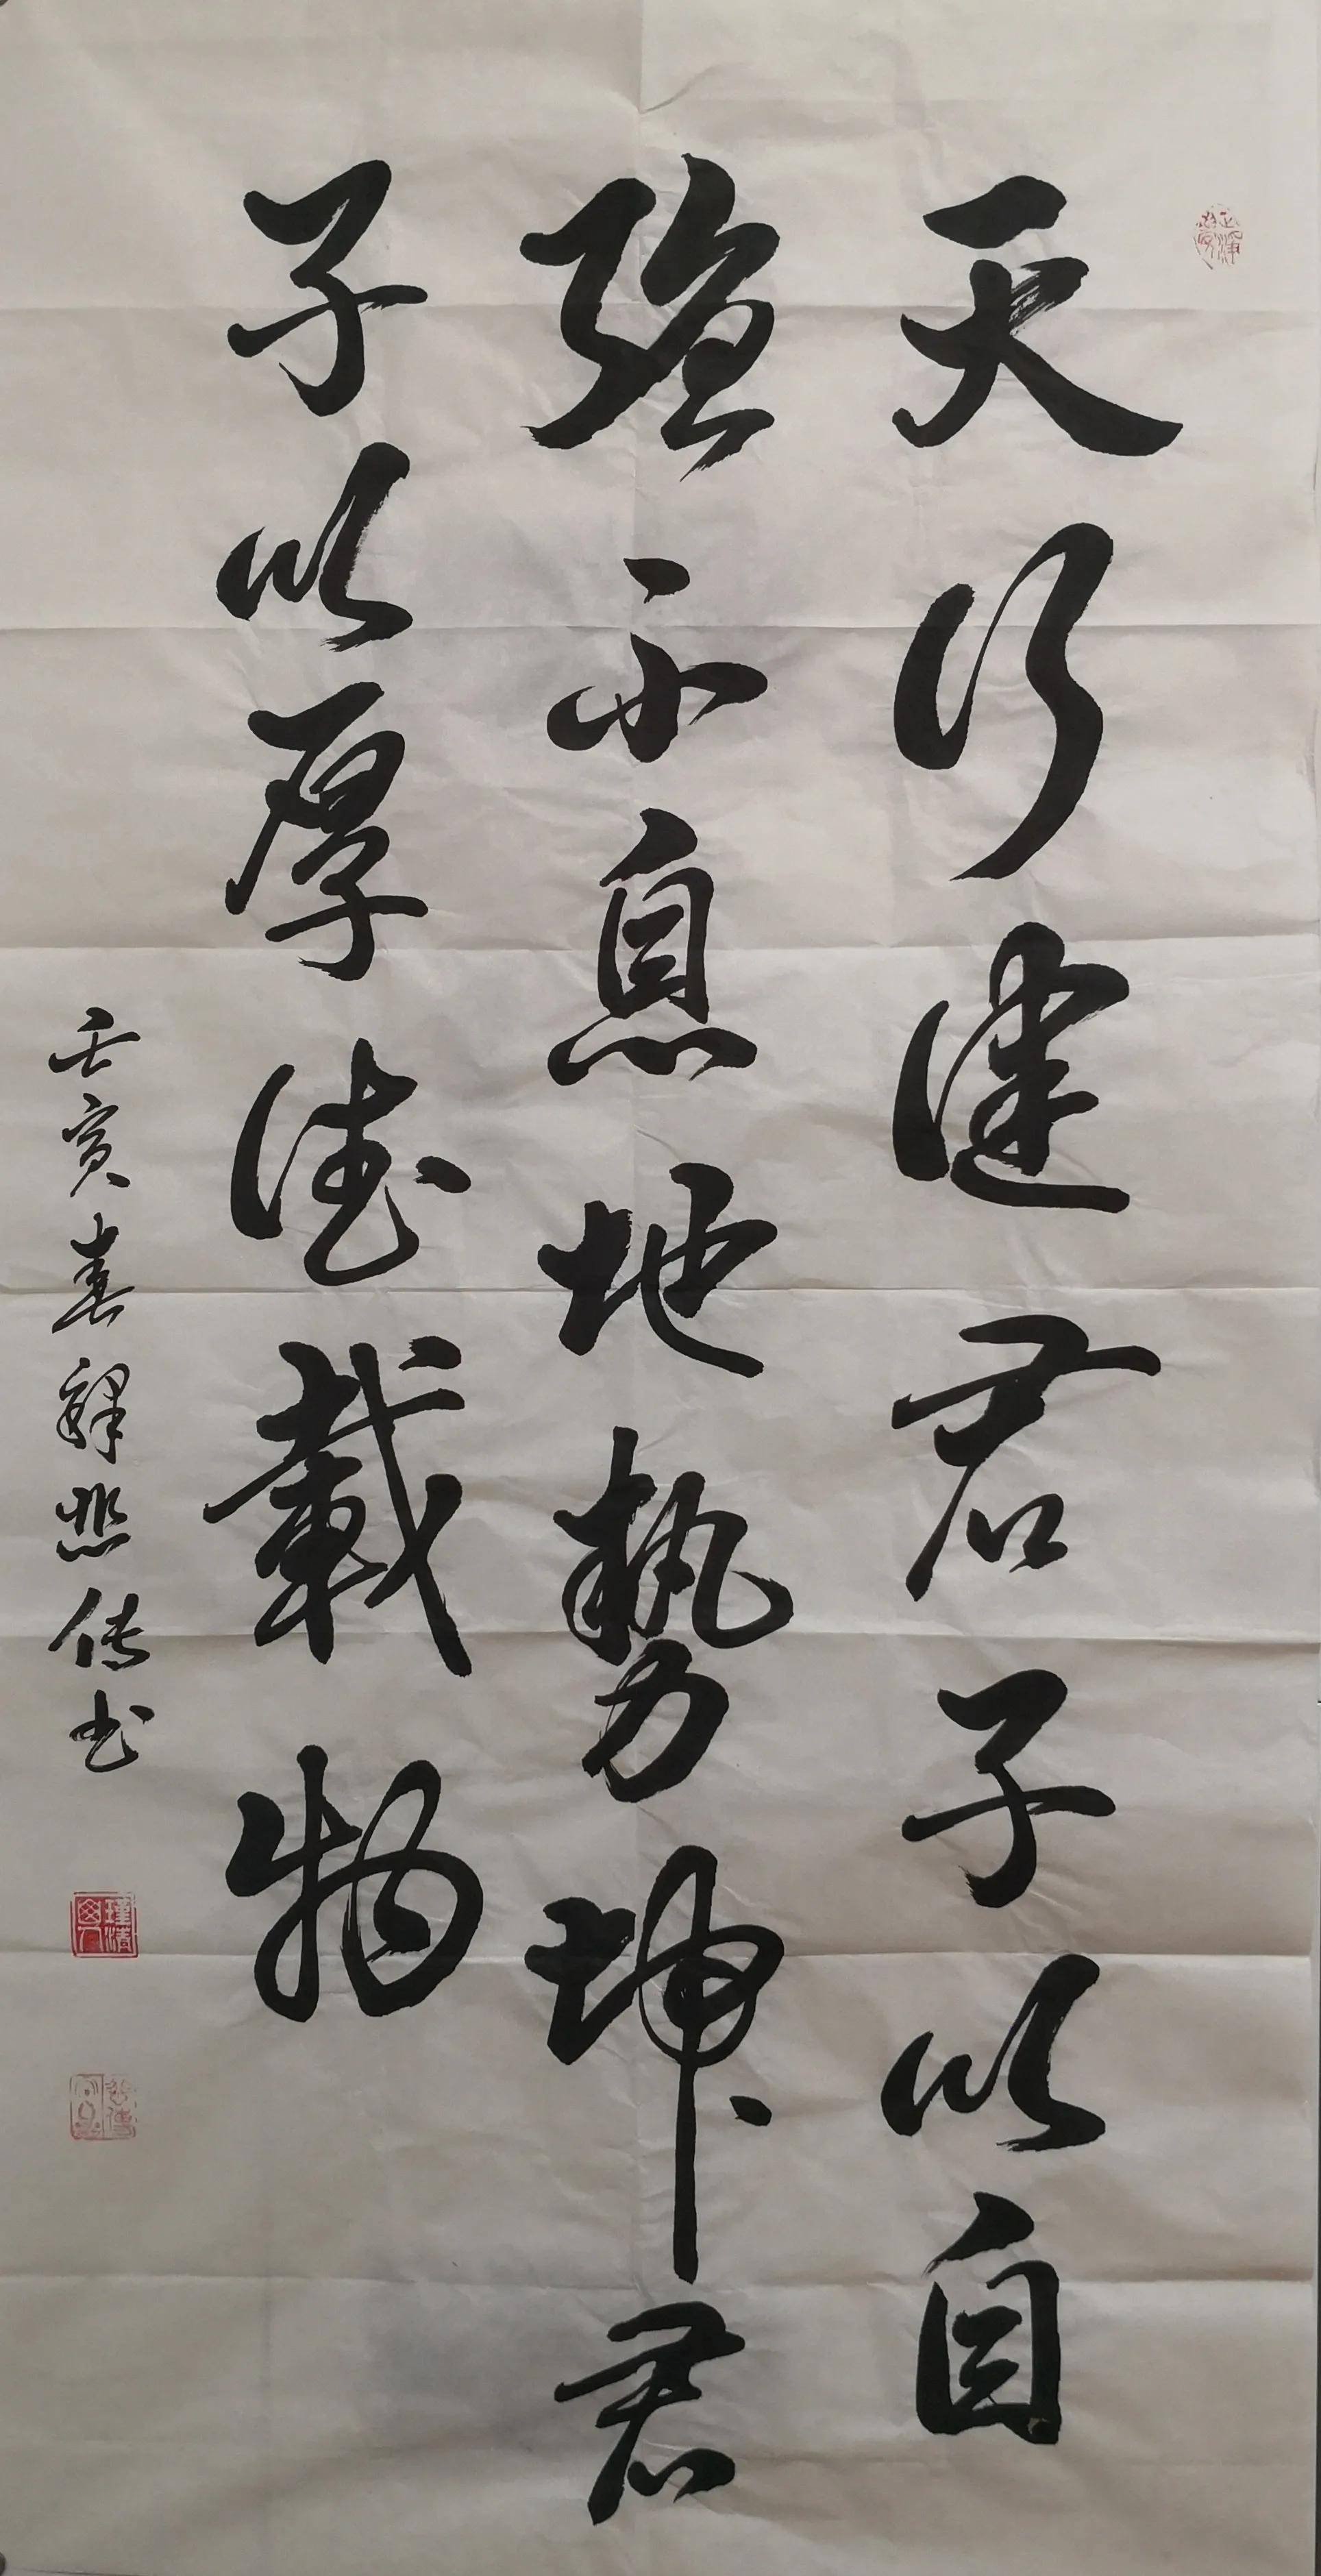 天行健君子以自
強不息地勢坤君
子以厚德載物
壬寅春釋悲传书